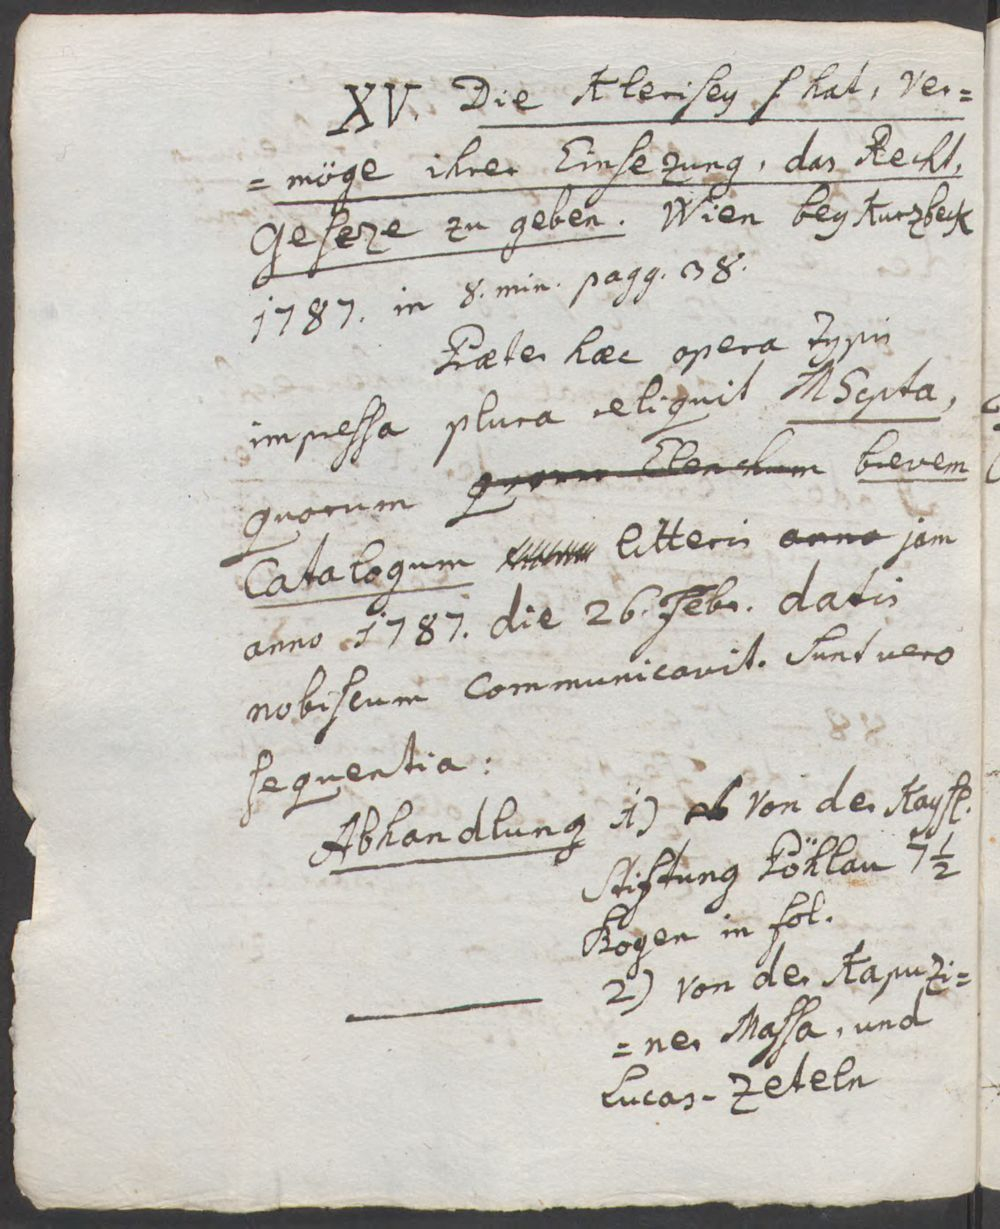 XV. Die Klerisey hat, ver=
=möge ihrer Einsezung, das Recht,
Geseze zu geben. Wien bey Kurzbeck
1787. in 8. min. pagg. 38.
Præter hæc opera typis
impressa plura reliquit MScpta,
quorum quorum Elenchum brevem
Catalogum litteris anno jam
anno 1787. die 26. Febr. datis
nobiscum communicavit. Sunt vero
sequentia:
Abhandlung 1) von der Kaysl.
Stiftung Pöhlau 7 1/2
Bogen in fol.
2) von der Kapuzi=
=ner Massa, und
Lucas-Zeteln